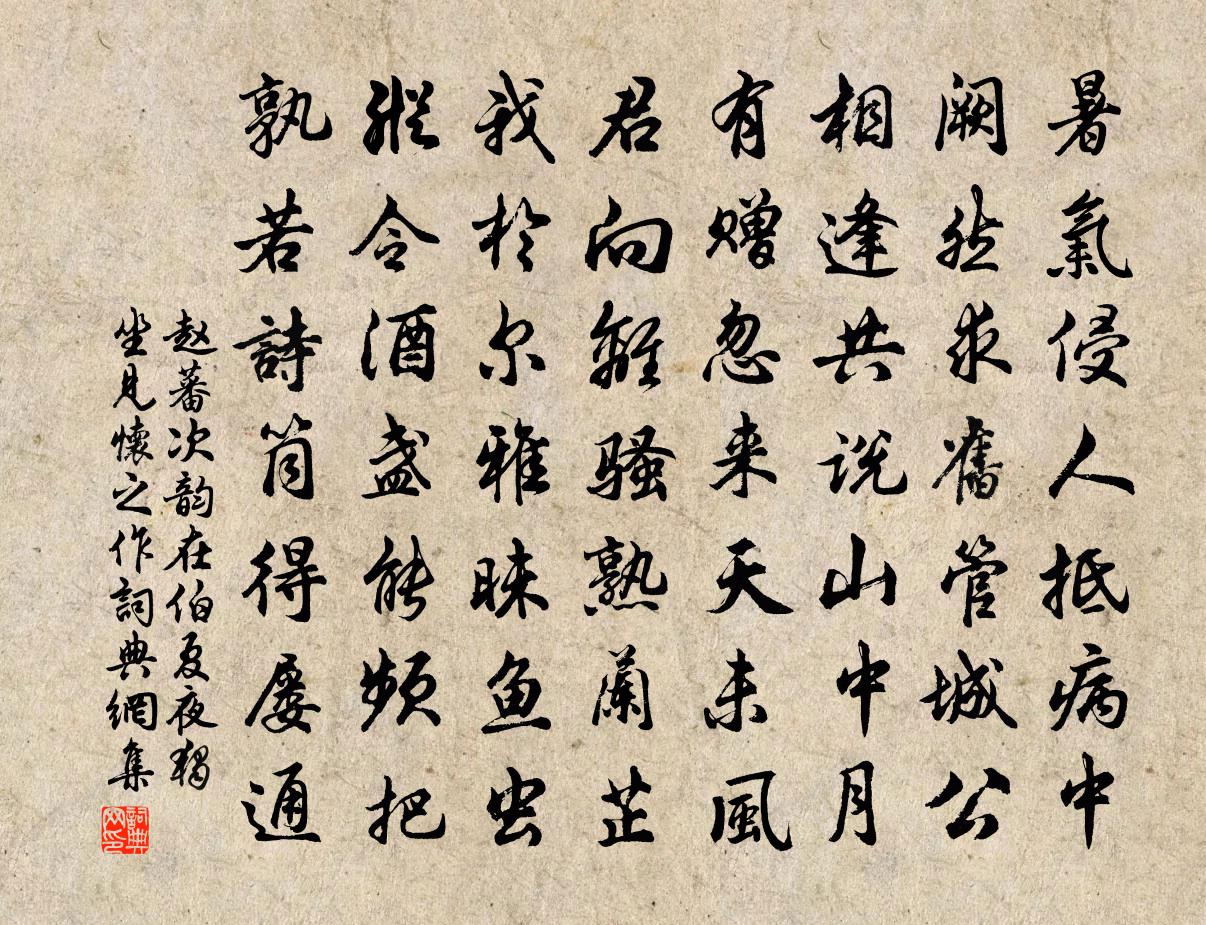 暑氣侵人抵病中
闕然求舊管城公
相逢共説山中月
有贈忽来天末風
君向離騷熟蘭芷
我於尔雅昧鱼虫
縱令酒盏能頻把
孰若詩筒得屡通
赵蕃次韵在伯夏夜獨
坐見懷之作詞典網集
詞典
网印